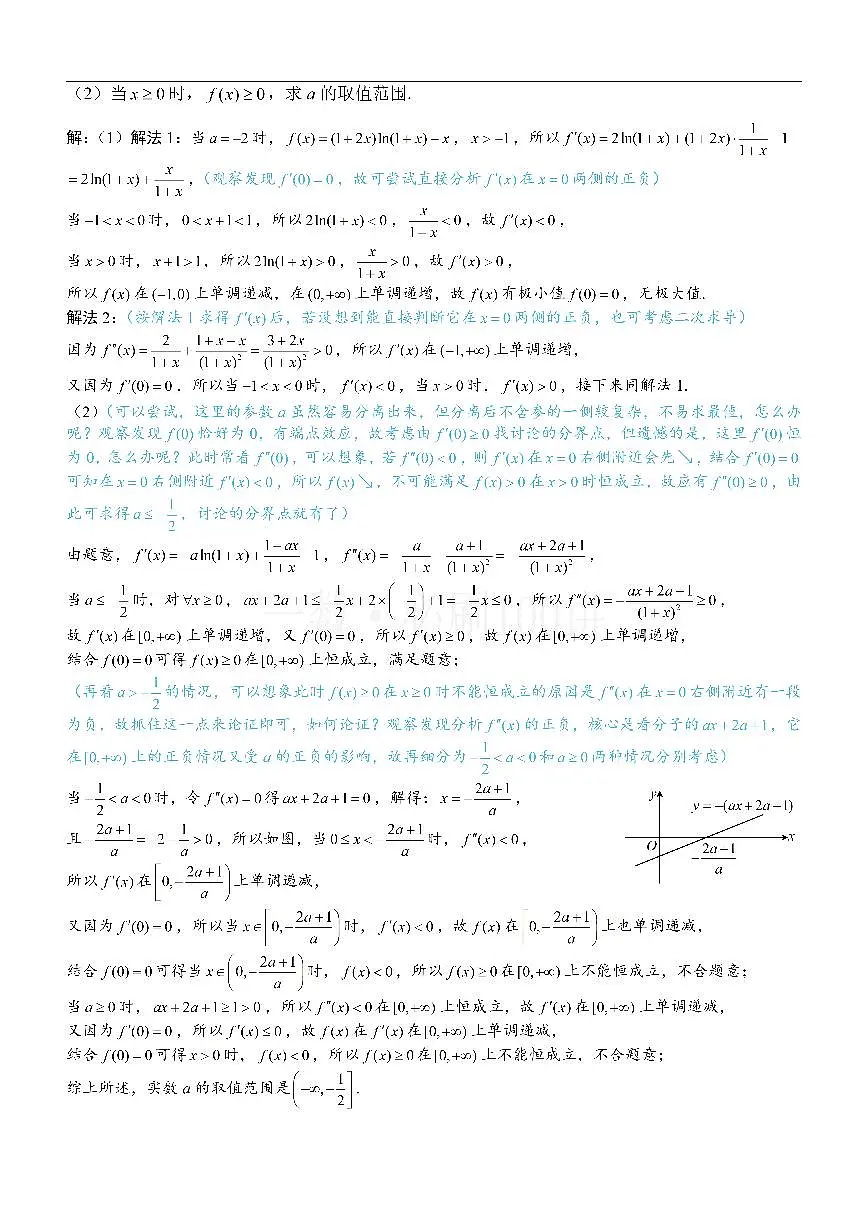 （2）当 x ≥ 0 时， f(x) ≥ 0，求 a 的取值范围.
解：（1）解法 1：当 a = −2 时， f(x) = (1+2x)ln(1+x) − x， x > −1，所以 f′(x) = 2ln(1+x) + (1+2x)·1/(1+x) 1
= 2ln(1+x) + x/(1+x)，（观察发现 f′(0) = 0，故可尝试直接分析 f′(x) 在 x = 0 两侧的正负）
当 −1 < x < 0 时， 0 < x+1 < 1，所以 2ln(1+x) < 0， x/(1−x) < 0，故 f′(x) < 0，
当 x > 0 时， x+1 > 1，所以 2ln(1+x) > 0， x/(1+x) > 0，故 f′(x) > 0，
所以 f(x) 在 (−1,0) 上单调递减，在 (0,+∞) 上单调递增，故 f(x) 有极小值 f(0) = 0，无极大值.
解法 2：（按解法 1 求得 f′(x) 后，若没想到能直接判断它在 x = 0 两侧的正负，也可考虑二次求导）
因为 f″(x) = 2/(1+x) + (1+x−x)/(1+x)² = (3+2x)/(1+x)² > 0，所以 f′(x) 在 (−1,+∞) 上单调递增，
又因为 f′(0) = 0，所以当 −1 < x < 0 时， f′(x) < 0，当 x > 0 时， f′(x) > 0，接下来同解法 1.
（2）（可以尝试，这里的参数 a 虽然容易分离出来，但分离后不含参的一侧较复杂，不易求最值，怎么办
呢？观察发现 f(0) 恰好为 0，有端点效应，故考虑由 f′(0) ≥ 0 找讨论的分界点，但遗憾的是，这里 f′(0) 恒
为 0，怎么办呢？此时常看 f″(0)，可以想象，若 f″(0) < 0，则 f′(x) 在 x = 0 右侧附近会先↘，结合 f′(0) = 0
可知在 x = 0 右侧附近 f′(x) < 0，所以 f(x)↘，不可能满足 f(x) > 0 在 x > 0 时恒成立，故应有 f″(0) ≥ 0，由
此可求得 a ≤ 1/2，讨论的分界点就有了）
由题意， f′(x) = aln(1+x) + (1−ax)/(1+x) 1， f″(x) = a/(1+x) (a+1)/(1+x)² = (ax+2a+1)/(1+x)²，
当 a ≤ 1/2 时，对 ∀x ≥ 0， ax+2a+1 ≤ 1/2 x + 2×( 1/2 ) + 1 = 1/2 x ≤ 0，所以 f″(x) = −(ax+2a−1)/(1+x)² ≥ 0，
故 f′(x) 在 [0,+∞) 上单调递增，又 f′(0) = 0，所以 f′(x) ≥ 0，故 f(x) 在 [0,+∞) 上单调递增，
结合 f(0) = 0 可得 f(x) ≥ 0 在 [0,+∞) 上恒成立，满足题意；
（再看 a > −1/2 的情况，可以想象此时 f(x) ≥ 0 在 x ≥ 0 时不能恒成立的原因是 f″(x) 在 x = 0 右侧附近有一段
为负，故抓住这一点来论证即可，如何论证？观察发现分析 f″(x) 的正负，核心是看分子的 ax+2a+1，它
在 [0,+∞) 上的正负情况又受 a 的正负的影响，故再细分为 −1/2 < a < 0 和 a ≥ 0 两种情况分别考虑）
当 −1/2 < a < 0 时，令 f″(x) = 0 得 ax+2a+1 = 0，解得： x = −(2a+1)/a，
且 (2a+1)/a = 2 1/a > 0，所以如图，当 0 ≤ x < (2a+1)/a 时， f″(x) < 0，
y
y = −(ax+2a−1)
O
x
−(2a−1)/a
所以 f′(x) 在 [0, −(2a+1)/a) 上单调递减，
又因为 f′(0) = 0，所以当 x ∈ [0, −(2a+1)/a) 时， f′(x) < 0，故 f(x) 在 [0, −(2a+1)/a) 上也单调递减，
结合 f(0) = 0 可得当 x ∈ (0, −(2a+1)/a) 时， f(x) < 0，所以 f(x) ≥ 0 在 [0,+∞) 上不能恒成立，不合题意；
当 a ≥ 0 时， ax+2a+1 ≥ 1 > 0，所以 f″(x) < 0 在 [0,+∞) 上恒成立，故 f′(x) 在 [0,+∞) 上单调递减，
又因为 f′(0) = 0，所以 f′(x) ≤ 0，故 f(x) 在 f′(x) 在 [0,+∞) 上单调递减，
结合 f(0) = 0 可得 x > 0 时， f(x) < 0，所以 f(x) ≥ 0 在 [0,+∞) 上不能恒成立，不合题意；
综上所述，实数 a 的取值范围是 (−∞, −1/2].